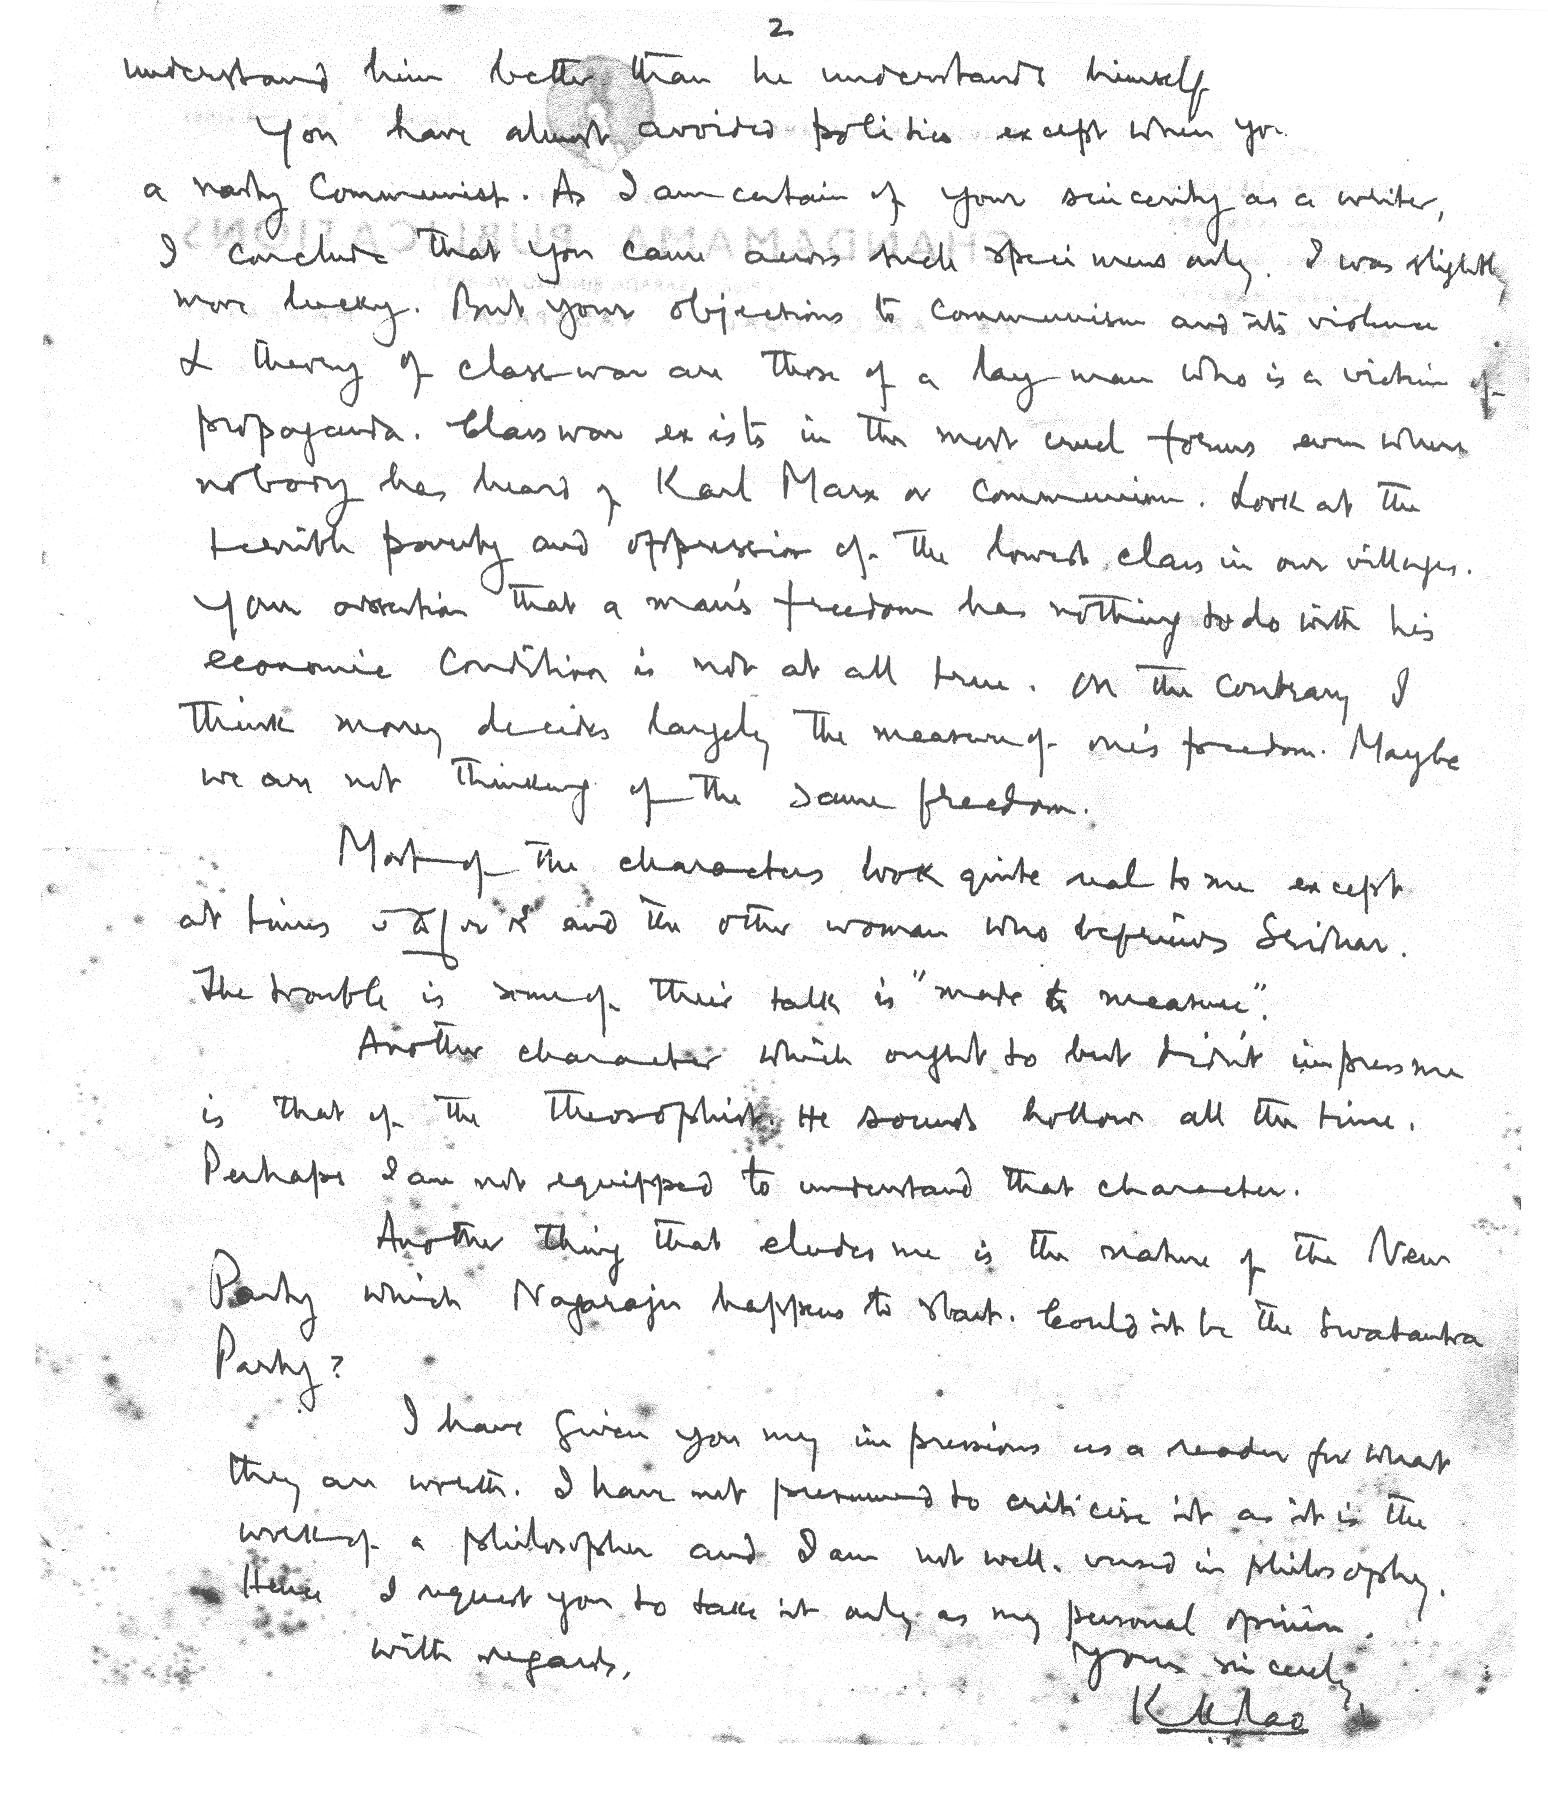 2
understand him better than he understands himself
You have almost avoided politics except when you
a nasty Communist. As I am certain of your sincerity as a writer,
CHANDAMAMA PUBLICATIONS
I conclude that you came across such specimens only. I was slightly
more lucky. But your objections to communism and its violence
& theory of class war are those of a lay man who is a victim of
propaganda. Class war exists in the most cruel forms even where
nobody has heard of Karl Marx or communism. Look at the
terrible poverty and oppression of the lowest class in our villages.
Your assertion that a man's freedom has nothing to do with his
economic condition is not at all true. On the contrary I
think money decides largely the measure of one's freedom. Maybe
we are not thinking of the same freedom.
Most of the characters look quite real to me except
at times and the other woman who befriends Sridhar.
The trouble is some of their talk is "made to measure".
Another character which ought to but didn't impress me
is that of the theosophist. He sounds hollow all the time.
Perhaps I am not equipped to understand that character.
Another thing that eludes me is the nature of the New
Party which Nagaraju happens to start. Could it be the Swatantra
Party?
I have given you my impressions as a reader for what
they are worth. I have not presumed to criticise it as it is the
work of a philosopher and I am not well-versed in philosophy.
Hence I request you to take it only as my personal opinion.
with regards,
Yours sincerely